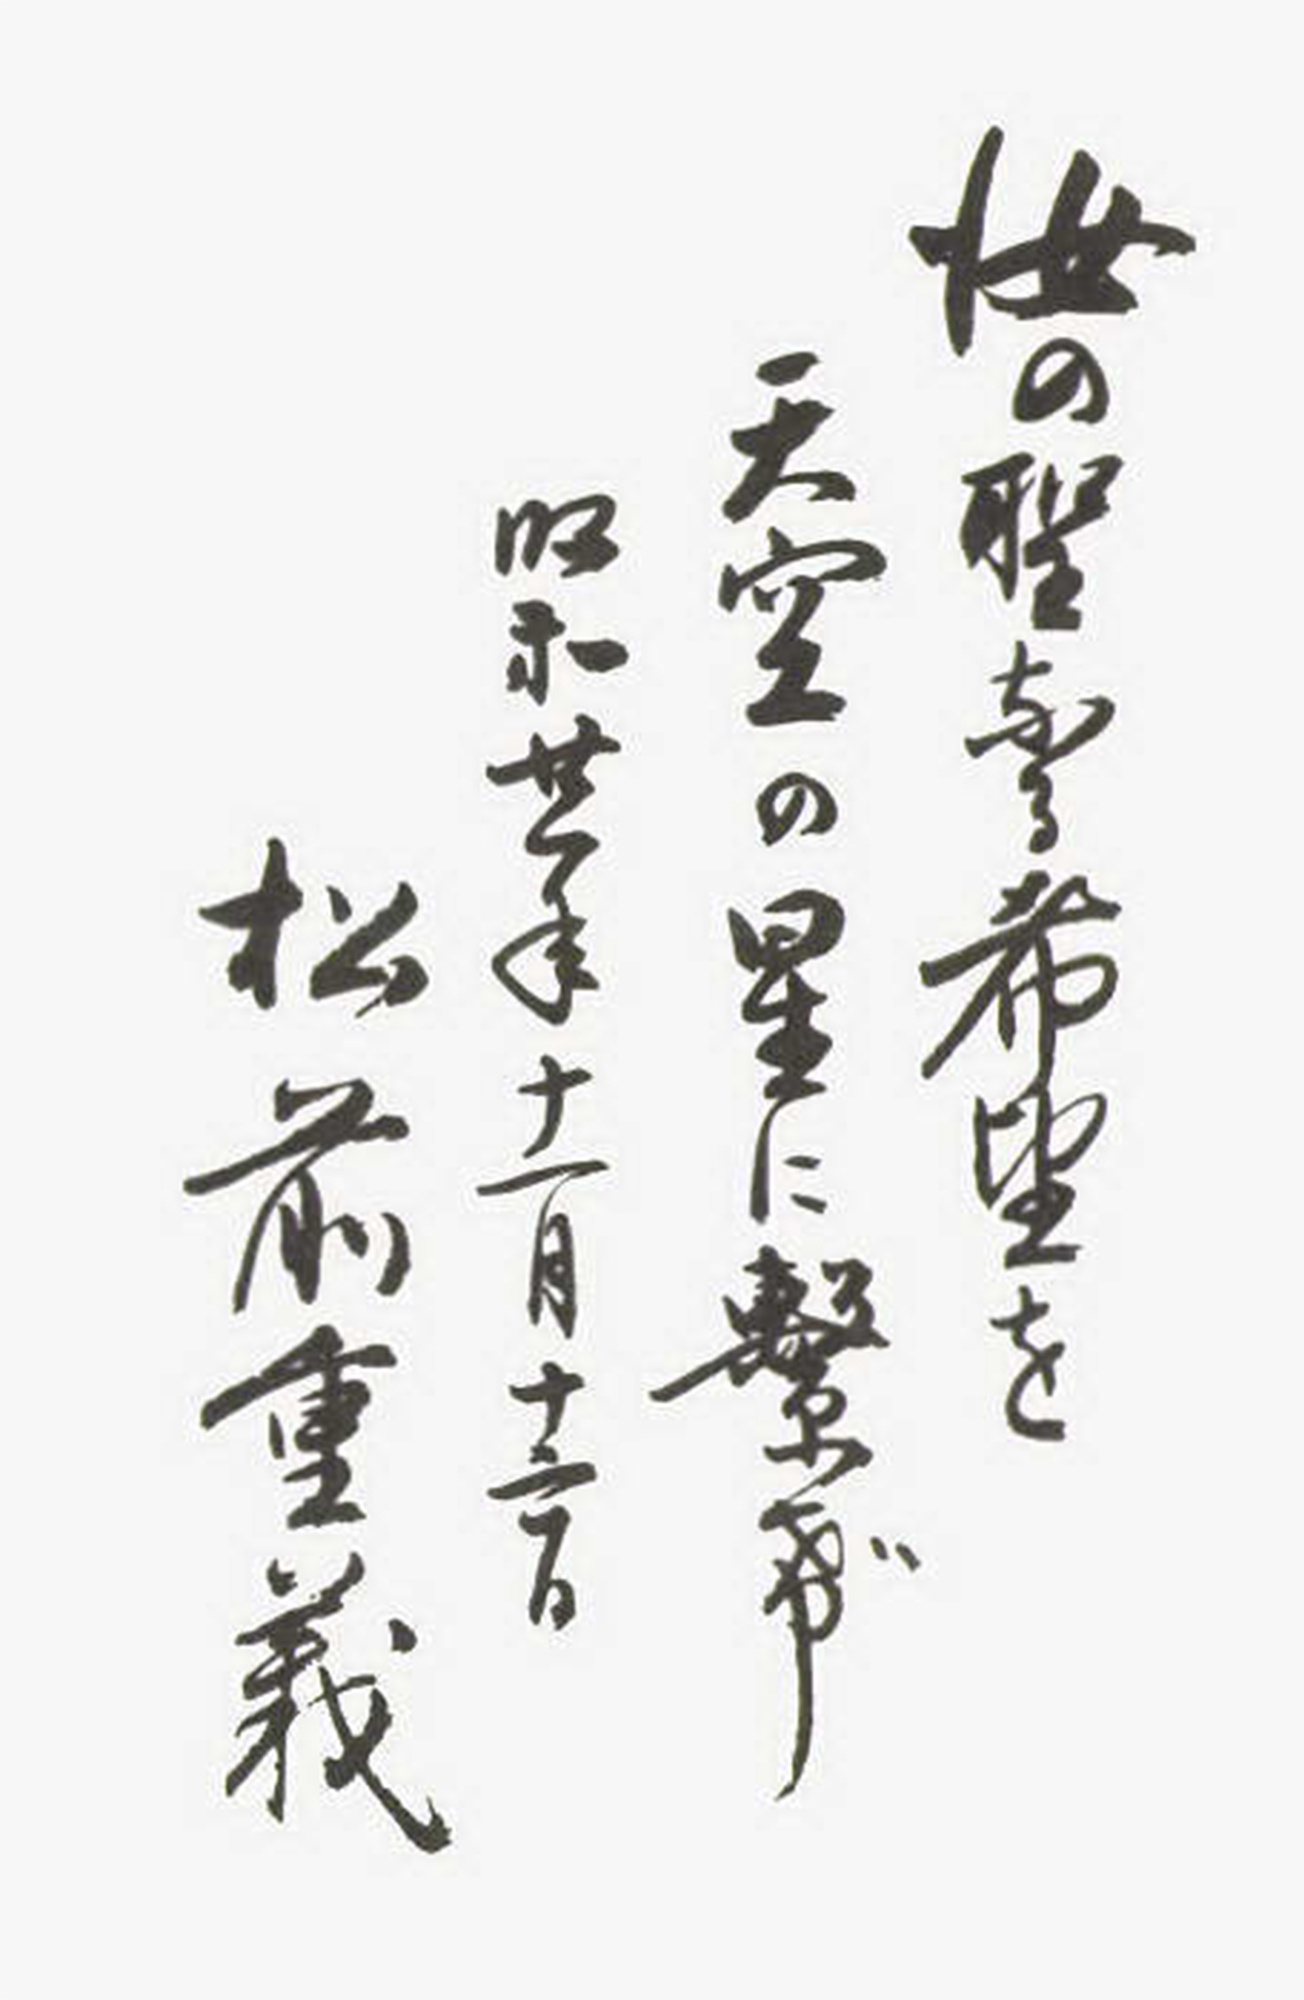 汝の聖なる希望を
天空の星に繋げ
昭和廿一年十一月十二日
松前重義